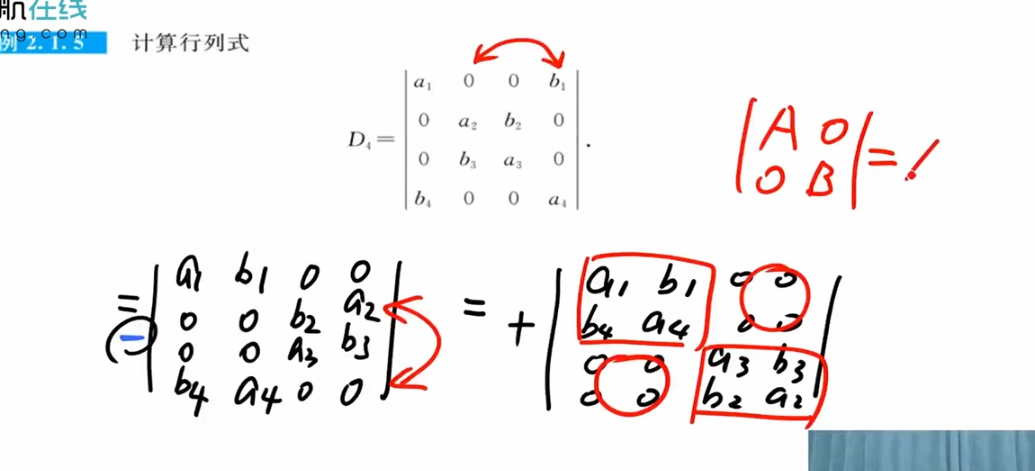 肌在线
ng.com
例 2.1.5 计算行列式
D₄ = | a₁ 0 0 b₁ |
| 0 a₂ b₂ 0 |
| 0 b₃ a₃ 0 |
| b₄ 0 0 a₄ | .
| A 0 |
| 0 B | =
= − | a1 b1 0 0 |
| 0 0 b2 a2 |
| 0 0 a3 b3 |
| b4 a4 0 0 |
= + | a1 b1 0 0 |
| b4 a4 0 0 |
| 0 0 a3 b3 |
| 0 0 b2 a2 |